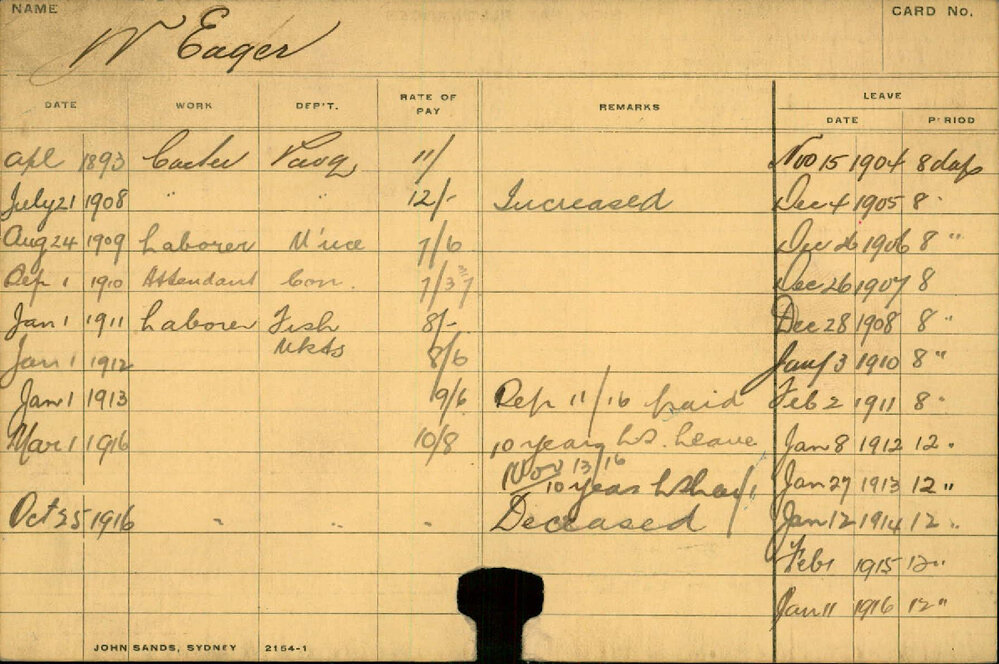 NAME
CARD No.
W Eager
DATE WORK DEP'T. RATE OF PAY REMARKS LEAVE
DATE PERIOD
Apl 1893 Carter 11/ Nov 15 1904 8 days
July 21 1908 " " 12/- Increased Dec 4 1905 8 "
Aug 24 1909 Laborer 7/6 Dec 26 1906 8 "
Sep 1 1910 Attendant Con. 7/3 Dec 26 1907 8
Jan 1 1911 Laborer Fish 8/- Dec 28 1908 8 "
Mkts
Jan 1 1912 8/6 Jany 3 1910 8 "
Jan 1 1913 9/6 Sep 11/16 paid Feb 2 1911 8 "
Mar 1 1916 10/8 10 years Leave Jan 8 1912 12 "
Nov 13/16
10 years Jan 27 1913 12 "
Oct 25 1916 " " " Deceased Jan 12 1914 12 "
Feb 1 1915 12 "
Jan 11 1916 12 "
JOHN SANDS, SYDNEY 2154-1